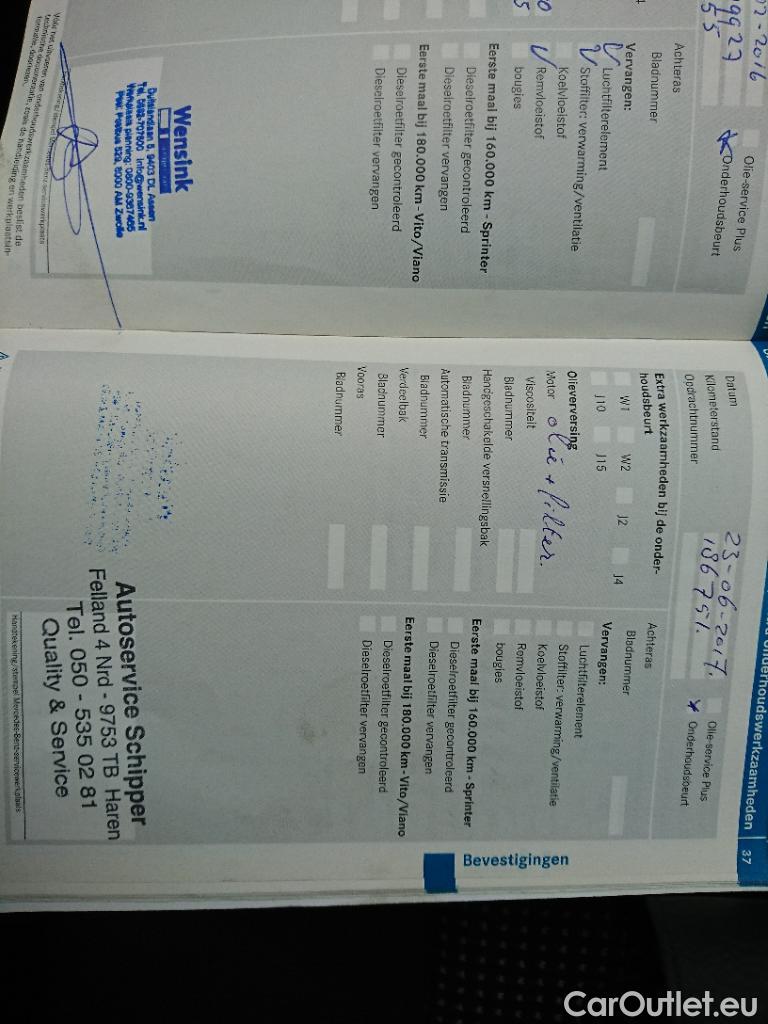 Olie-service Plus
Onderhoudsbeurt
Achteras
Bladnummer
Vervangen:
Luchtfilterelement
Stoffilter: verwarming/ventilatie
Koelvloeistof
Remvloeistof
bougies
Eerste maal bij 160.000 km - Sprinter
Dieselroetfilter gecontroleerd
Dieselroetfilter vervangen
Eerste maal bij 180.000 km - Vito/Viano
Dieselroetfilter gecontroleerd
Dieselroetfilter vervangen
Wensink
37
Datum 23-06-2017.
Kilometerstand 186751.
Opdrachtnummer
Olie-service Plus
Onderhoudsbeurt
Extra werkzaamheden bij de onder-
houdsbeurt
W1 W2 J2 J4
J10 J15
Olieverversing
Motor olie + filter.
Viscositeit
Bladnummer
Handgeschakelde versnellingsbak
Bladnummer
Automatische transmissie
Bladnummer
Verdeelbak
Bladnummer
Vooras
Bladnummer
Achteras
Bladnummer
Vervangen:
Luchtfilterelement
Stoffilter: verwarming/ventilatie
Koelvloeistof
Remvloeistof
bougies
Eerste maal bij 160.000 km - Sprinter
Dieselroetfilter gecontroleerd
Dieselroetfilter vervangen
Eerste maal bij 180.000 km - Vito/Viano
Dieselroetfilter gecontroleerd
Dieselroetfilter vervangen
Autoservice Schipper
Felland 4 Nrd - 9753 TB Haren
Tel. 050 - 535 02 81
Quality & Service
Handtekening/stempel Mercedes-Benz-servicewerkplaats
Bevestigingen
CarOutlet.eu